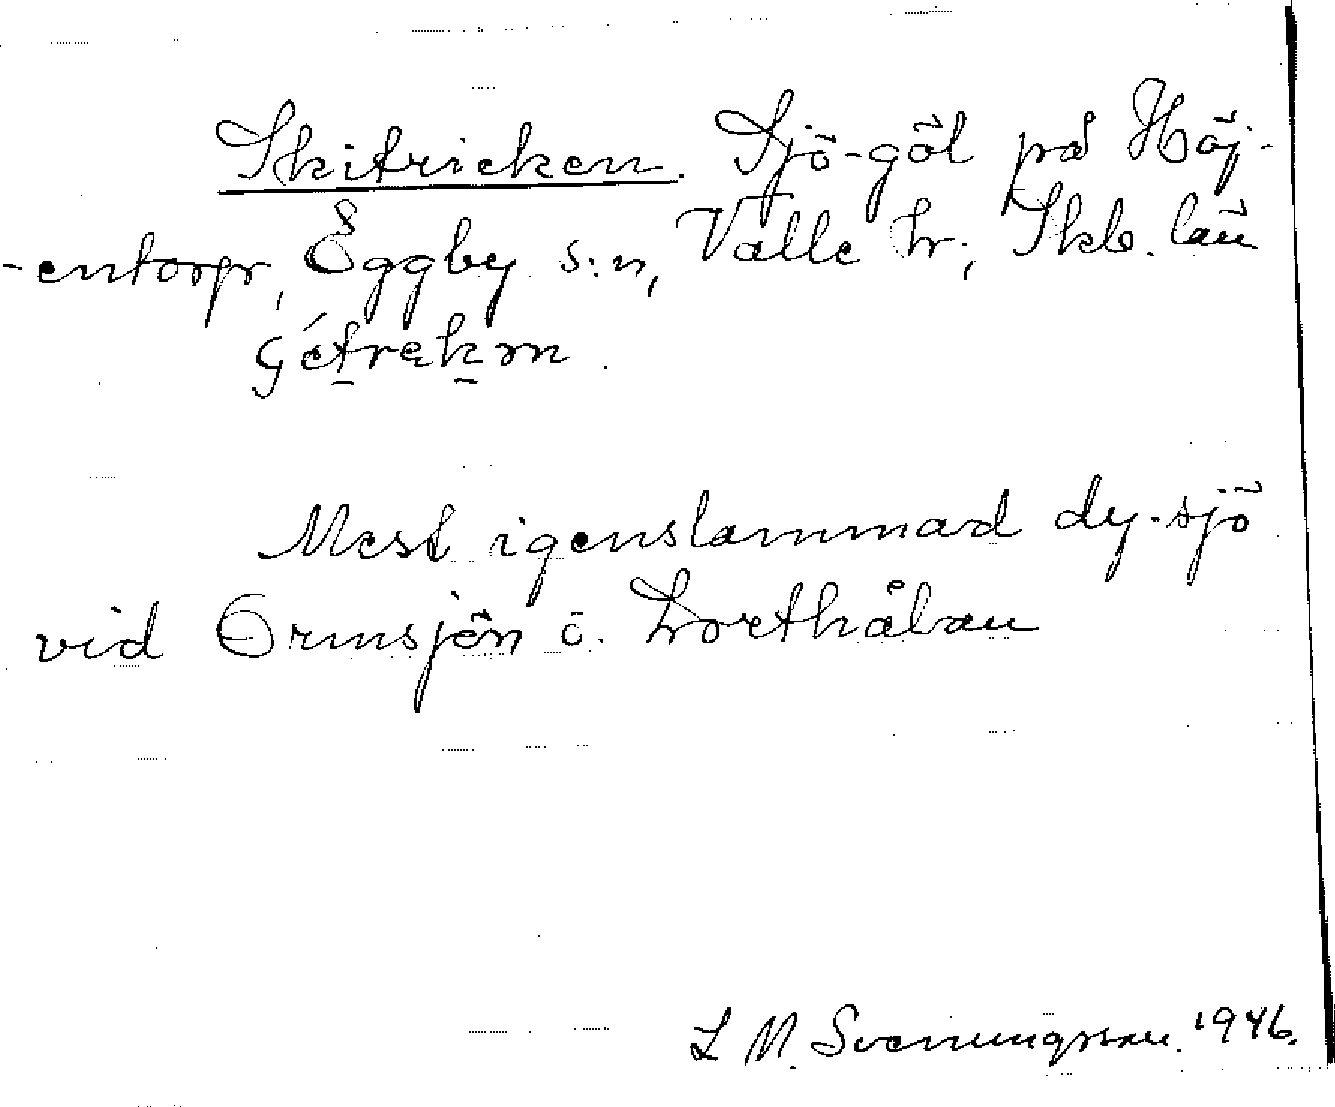 Skitricken. Sjö-göl på Höj-
-entorp, Eggby s:n, Valle hr, Skb. län
Mest igenslammad dy-sjö
vid Ormsjön o. Lorthålan
L M. Svenungsson. 1946.